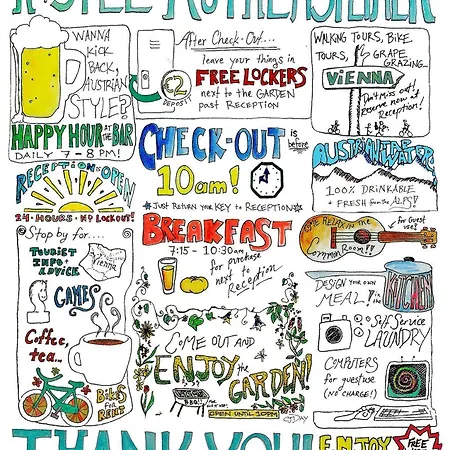 WANNA
KICK
BACK,
AUSTRIAN
STYLE?
HAPPY HOUR AT THE BAR
DAILY 7-8 PM!
After Check-Out....
leave your things in
FREE LOCKERS
next to the GARDEN
past RECEPTION
€2
DEPOSIT
WALKING TOURS, BIKE
TOURS, GRAPE
GRAZING...
VIENNA
Don't miss out!
Reserve now at
Reception!
CHECK-OUT
is before
10am!
Just Return your KEY to RECEPTION
AUSTRIAN TAP WATER
100% DRINKABLE
+ FRESH from the ALPS!
RECEPTION OPEN
24-HOURS-NO LOCKOUT!
Stop by for....
TOURIST
INFO +
ADVICE
Vienna
GAMES
Coffee,
tea...
BIKES
FOR
RENT
BREAKFAST
7:15 - 10:30am
for purchase
next to
Reception
COME RELAX in the
Common Room!!
for Guest
use!
DESIGN YOUR OWN
MEAL! in
KITCHEN
Self Service
LAUNDRY
COMPUTERS
for guest use
(NO CHARGE!)
COME OUT AND
ENJOY
the GARDEN!
BBQ!!
OPEN UNTIL 10PM
CJDAY
THANK YOU!
ENJOY
FREE